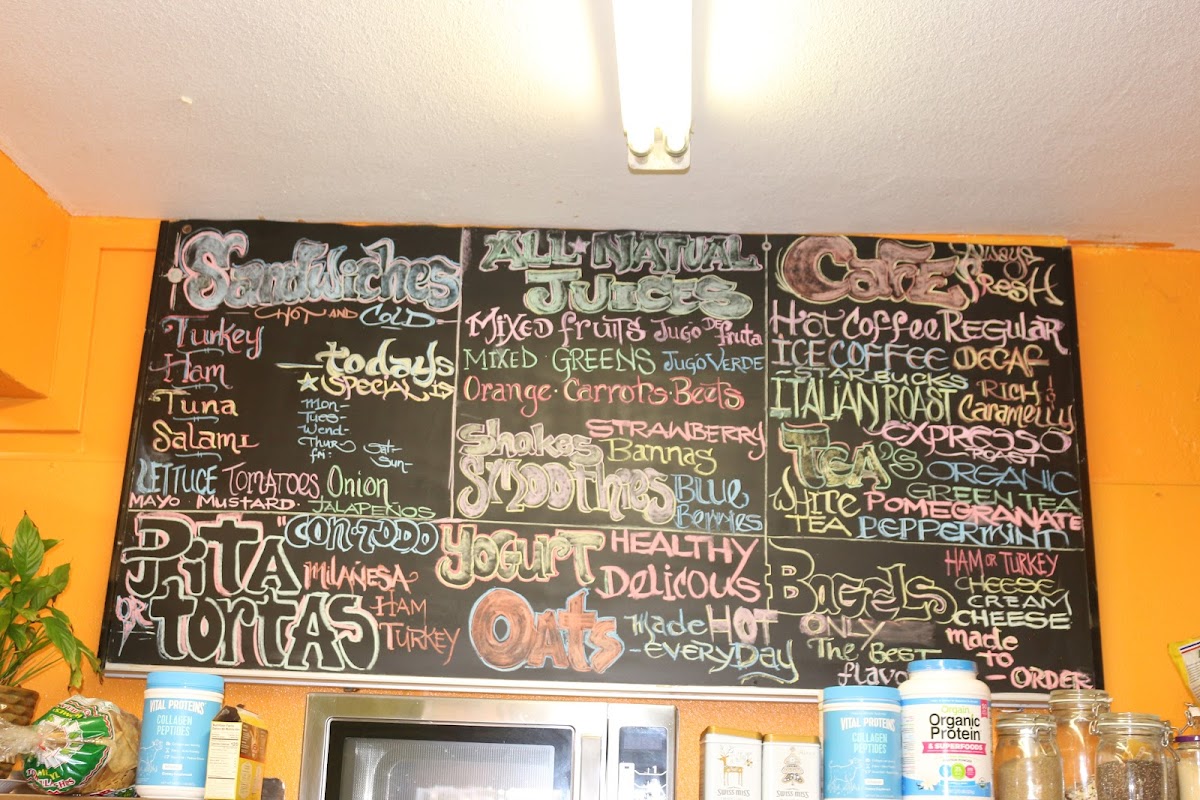 Sandwiches
HOT AND COLD
Turkey
Ham
Tuna
Salami
todays
SPECIAL IS
Mon-
Tues-
Wend-
Thur-
fri:
Sat-
Sun-
LETTUCE TOMATOES Onion
MAYO MUSTARD. JALAPEÑOS
ALL NATUAL
JUICES
Mixed fruits Jugo De fruta
MIXED GREENS JUGO VERDE
Orange · Carrots · Beets
Shakes
SMOOTHIES
STRAWBERRY
Bannas
Blue
Berries
CAFE Always
fresH
Hot Coffee Regular
ICE COFFEE DECAF
STAR BUCKS
ITALIAN ROAST RICH
Caramelly
EXPRESSO
ROAST
TEA'S ORGANIC
GREEN TEA
WHITE
TEA
POMEGRANATE
PEPPERMINT
PITA "CON-TODO
OR
TORTAS
MILAÑESA
HAM
TURKEY
YOGURT HEALTHY
DELICOUS
Oats made HOT
-EVERYDAY
BAGELS
ONLY
The BEST
flavo
HAM OR TURKEY
CHEESE
CREAM
CHEESE
made
to
- ORDER
VITAL PROTEINS
COLLAGEN
PEPTIDES
SWISS MISS
SWISS MISS
VITAL PROTEINS
COLLAGEN
PEPTIDES
Orgain
Organic
Protein
& SUPERFOODS